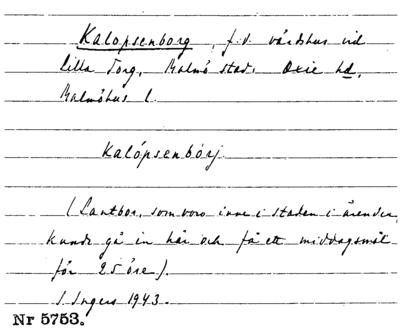 Kalopsenborg, f.d. värdshus vid
Lilla Torg, Malmö stad. Oxie hd,
Malmöhus l.
Kalópsenbórj
(Lantbor, som voro inne i staden i ärenden,
kunde gå in här och få ett middagsmål
för 25 öre).
I. Ingers 1943.
Nr 5753.